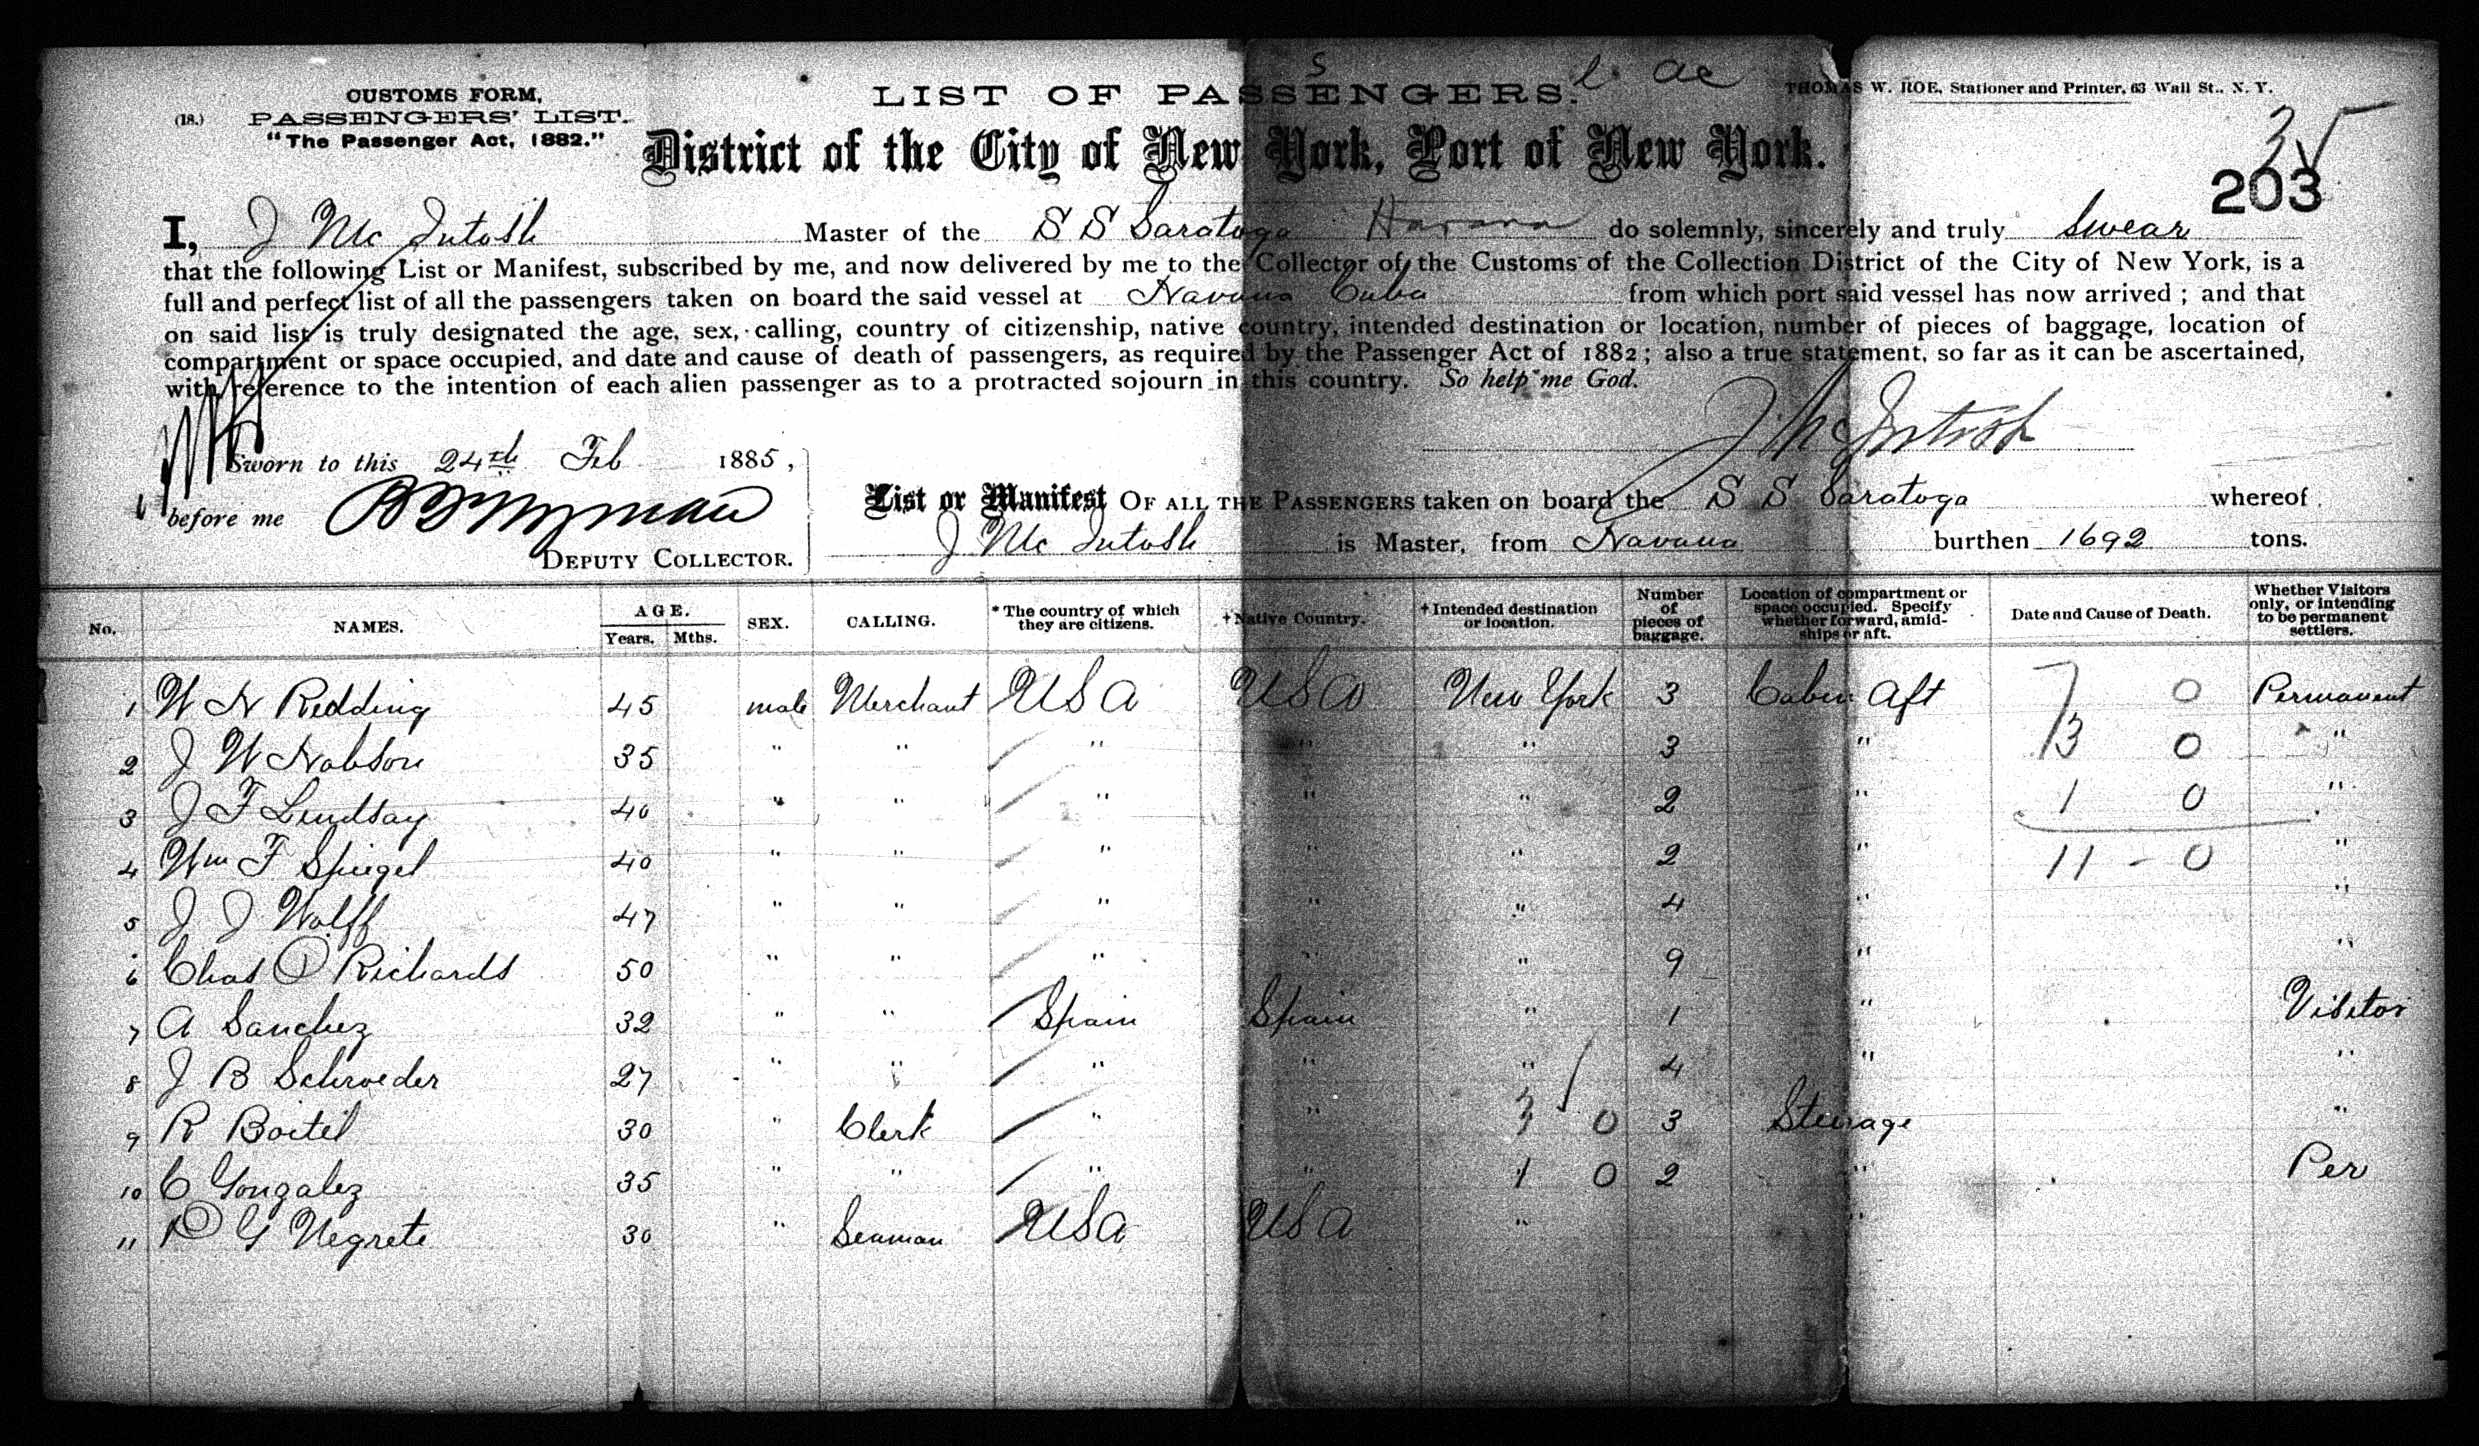 S l. ac
CUSTOMS FORM, LIST OF PASSENGERS. THOMAS W. ROE, Stationer and Printer, 63 Wall St., N. Y.
(18.) PASSENGERS' LIST.
"The Passenger Act, 1882."
District of the City of New York, Port of New York.
203
I, J McIntosh Master of the S S Saratoga Havana do solemnly, sincerely and truly swear
that the following List or Manifest, subscribed by me, and now delivered by me to the Collector of the Customs of the Collection District of the City of New York, is a
full and perfect list of all the passengers taken on board the said vessel at Havana Cuba from which port said vessel has now arrived ; and that
on said list is truly designated the age, sex, calling, country of citizenship, native country, intended destination or location, number of pieces of baggage, location of
compartment or space occupied, and date and cause of death of passengers, as required by the Passenger Act of 1882 ; also a true statement, so far as it can be ascertained,
with reference to the intention of each alien passenger as to a protracted sojourn in this country. So help me God.
J. McIntosh
Sworn to this 24th Feb 1885,
List or Manifest OF ALL THE PASSENGERS taken on board the S S Saratoga whereof
before me
J McIntosh is Master, from Havana burthen 1692 tons.
DEPUTY COLLECTOR.
No. NAMES. AGE. Years. Mths. SEX. CALLING. * The country of which they are citizens. † Native Country. † Intended destination or location. Number of pieces of baggage. Location of compartment or space occupied. Specify whether forward, amidships or aft. Date and Cause of Death. Whether Visitors only, or intending to be permanent settlers.
1 W N Redding 45 male Merchant USA USA New York 3 Cabin Aft 7 0 Permanent
2 J W Nobson 35 " " " " " 3 " 3 0 "
3 J F Lindsay 40 " " " " " 2 " 1 0 "
4 Wm F Spiegel 40 " " " " " 2 " 11 - 0 "
5 J J Wolff 47 " " " " " 4 " "
6 Chas O Richards 50 " " " " " 9 " "
7 A Sanchez 32 " " Spain Spain " 1 " Visitor
8 J B Schroeder 27 " " " " " 4 " "
9 R Boitel 30 " Clerk " " 3 0 3 Steerage "
10 C Gonzalez 35 " " " " 1 0 2 " Per
11 P G Negrete 30 " Seaman USA USA " "